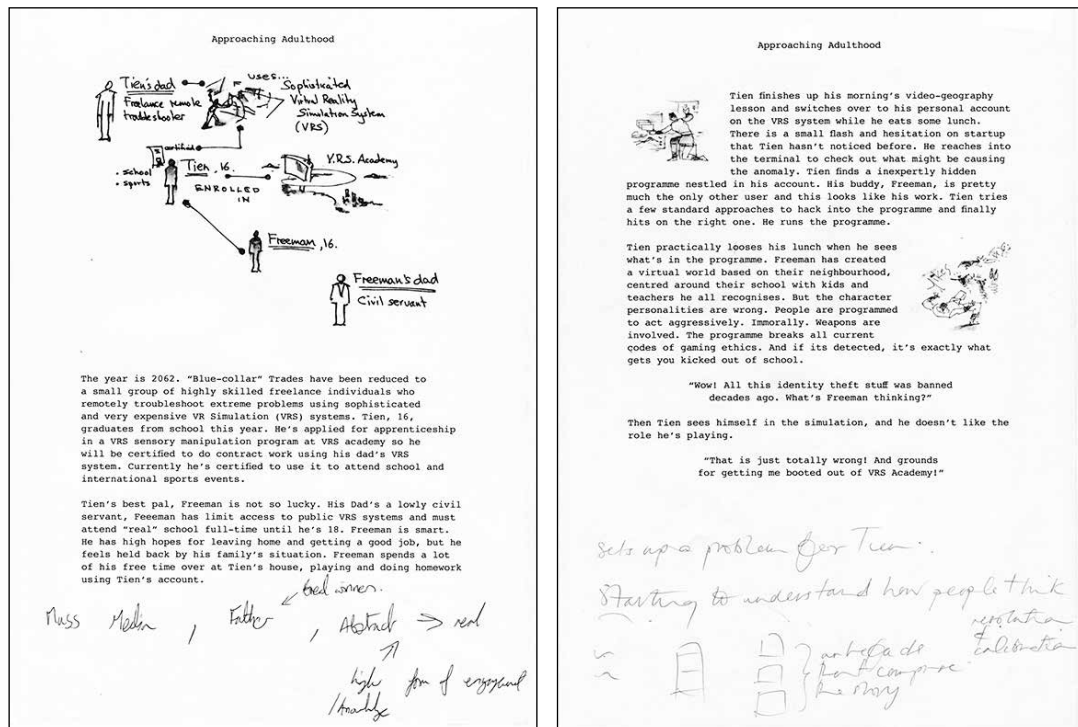 Approaching Adulthood
Tien's dad
Freelance remote
troubleshooter
uses...
Sophisticated
Virtual Reality
Simulation System
(VRS)
certified
• school
• sports
Tien, 16.
ENROLLED
IN
V.R.S. Academy
Freeman, 16.
Freeman's dad
Civil servant
The year is 2062. “Blue-collar” Trades have been reduced to
a small group of highly skilled freelance individuals who
remotely troubleshoot extreme problems using sophisticated
and very expensive VR Simulation (VRS) systems. Tien, 16,
graduates from school this year. He's applied for apprenticeship
in a VRS sensory manipulation program at VRS academy so he
will be certified to do contract work using his dad's VRS
system. Currently he's certified to use it to attend school and
international sports events.
Tien's best pal, Freeman is not so lucky. His Dad's a lowly civil
servant, Feeeman has limit access to public VRS systems and must
attend “real” school full-time until he's 18. Freeman is smart.
He has high hopes for leaving home and getting a good job, but he
feels held back by his family's situation. Freeman spends a lot
of his free time over at Tien's house, playing and doing homework
using Tien's account.
bred winner.
Mass Media, Father, Abstract → real
high form of engagement
/knowledge
Approaching Adulthood
Tien finishes up his morning's video-geography
lesson and switches over to his personal account
on the VRS system while he eats some lunch.
There is a small flash and hesitation on startup
that Tien hasn't noticed before. He reaches into
the terminal to check out what might be causing
the anomaly. Tien finds a inexpertly hidden
programme nestled in his account. His buddy, Freeman, is pretty
much the only other user and this looks like his work. Tien tries
a few standard approaches to hack into the programme and finally
hits on the right one. He runs the programme.
Tien practically looses his lunch when he sees
what's in the programme. Freeman has created
a virtual world based on their neighbourhood,
centred around their school with kids and
teachers he all recognises. But the character
personalities are wrong. People are programmed
to act aggressively. Immorally. Weapons are
involved. The programme breaks all current
codes of gaming ethics. And if its detected, it's exactly what
gets you kicked out of school.
“Wow! All this identity theft stuff was banned
decades ago. What's Freeman thinking?”
Then Tien sees himself in the simulation, and he doesn't like the
role he's playing.
“That is just totally wrong! And grounds
for getting me booted out of VRS Academy!”
sets up a problem for Tien.
Starting to understand how people think
the story